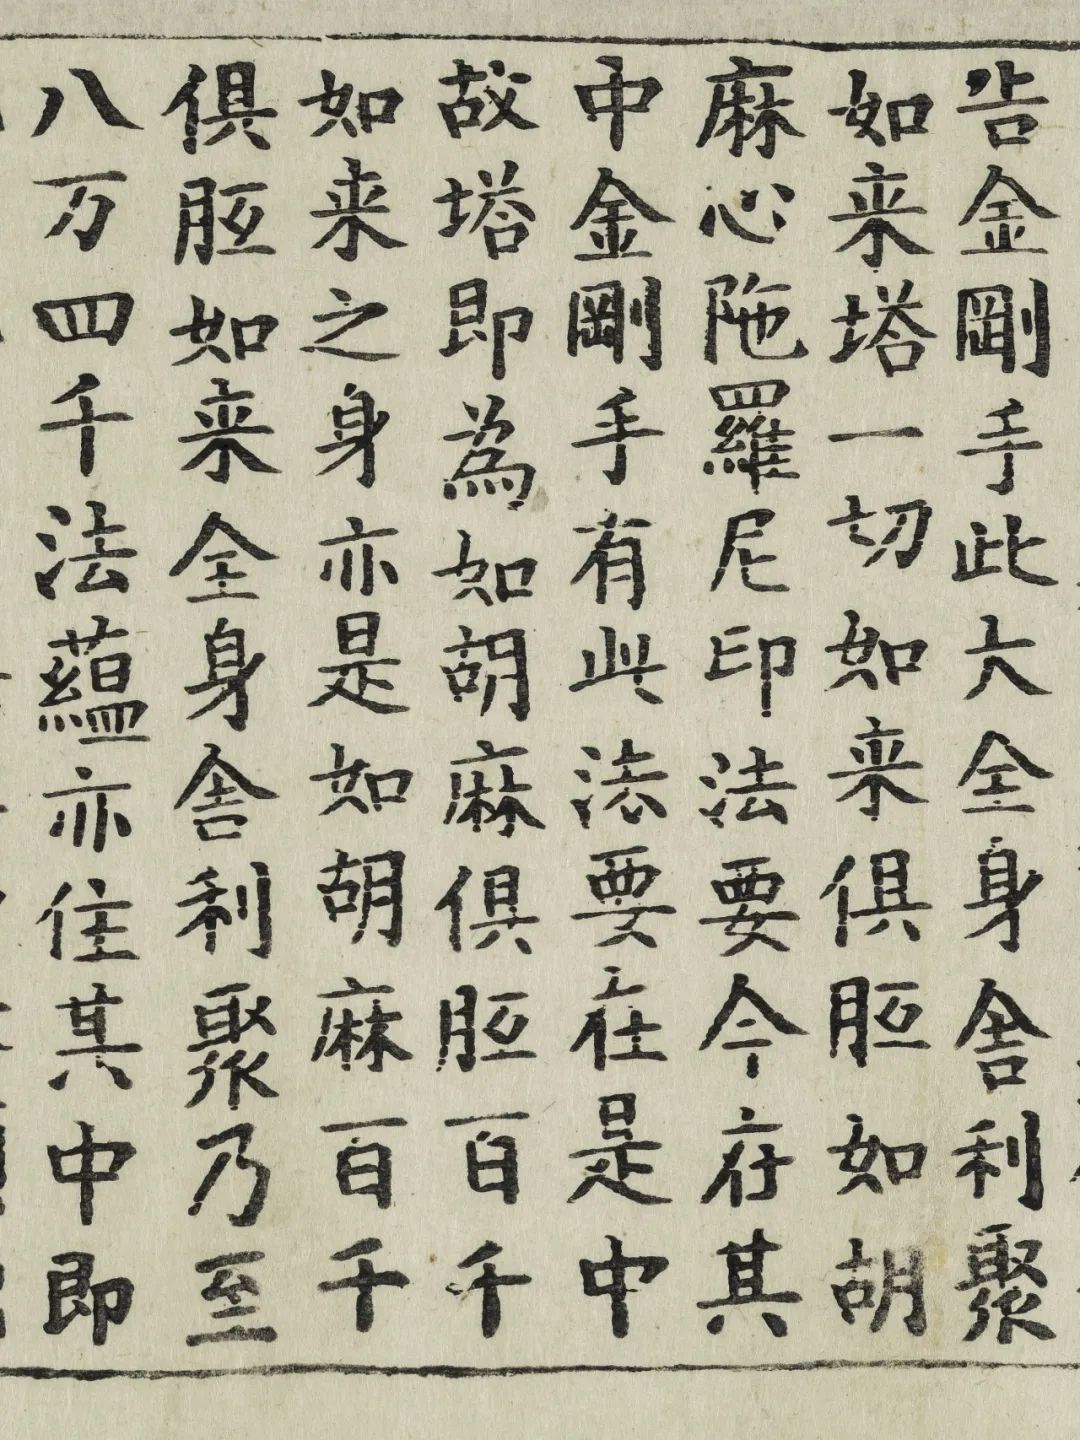 告金剛手此大全身舍利聚
如来塔一切如来俱胝如胡
麻心陁羅尼印法要今存其
中金剛手有此法要在是中
故塔即為如胡麻俱胝百千
如来之身亦是如胡麻百千
俱胝如来全身舍利聚乃至
八万四千法蘊亦住其中即